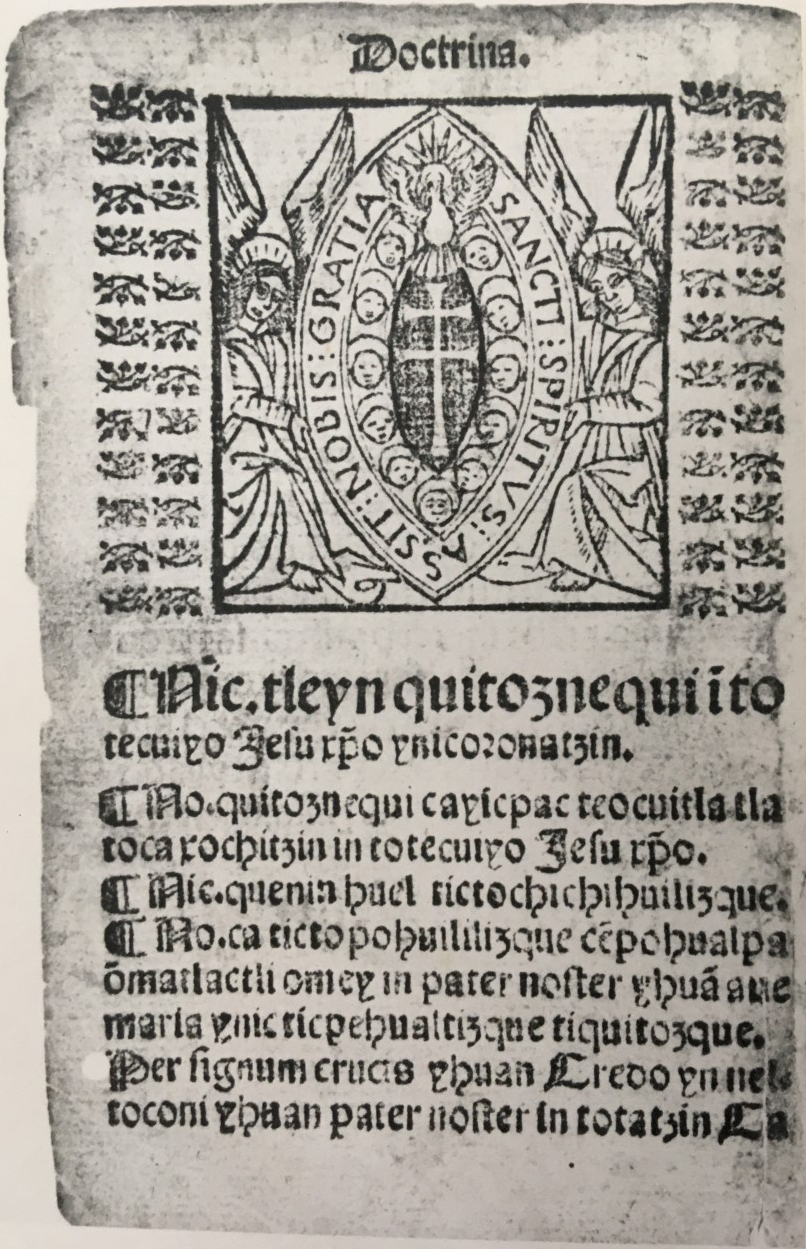 Doctrina.
SANCTI: SPIRITVS: ASSIT: NOBIS: GRATIA
¶ Nic. tleyn quitoznequi ĩ to
tecuiyo Jesu xp̃o ynicoronatzin.
¶ No. quitoznequi cayicpac teocuitla tla
toca xochitzin in totecuiyo Jesu xp̃o.
¶ Nic. quenin huel tictochichihuilizque.
¶ No. ca tictopohuililizque cẽpohualpa
õmatlactli omey in pater noster yhuã aue
maria ynic ticpehualtizque tiquitozque.
Per signum crucis yhuan Credo yn nel-
toconi yhuan pater noster in totatzin Ca